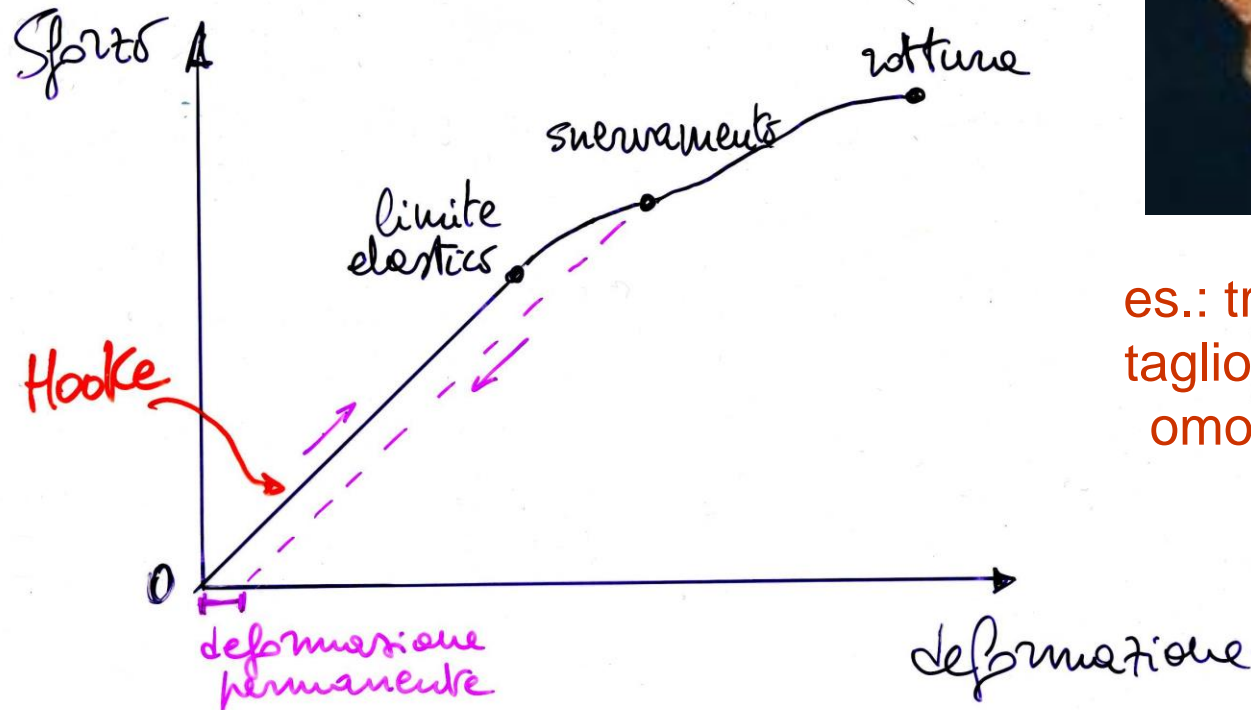 Sforzo
rottura
snervamento
limite
elastico
es.: tr
taglio
omo
Hooke
0
deformazione
permanente
deformazione